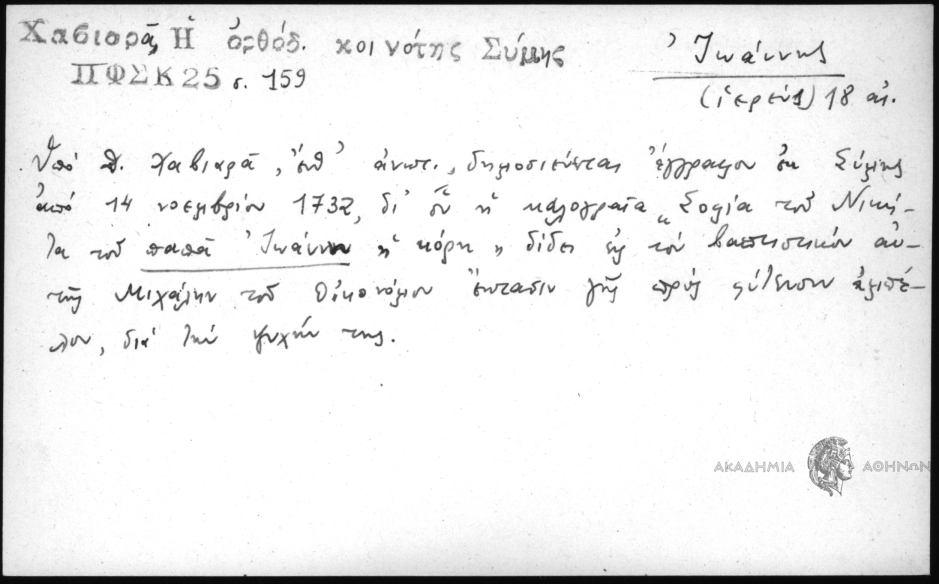 Χαβιαρᾶ, Ἡ ὀρθόδ. κοινότης Σύμης
ΠΦΣΚ 25 σ. 159
Ἰωάννης
(ἱερεύς) 18 αἰ.
Ὑπό Δ. Χαβιαρᾶ, ἔνθ' ἀνωτ., δημοσιεύεται ἔγγραφον ἐκ Σύμης
ἀπό 14 νοεμβρίου 1732, δι' οὗ ἡ καλογραῖα "Σοφία τοῦ Νική-
τα τοῦ παπᾶ Ἰωάννη ἡ κόρη" δίδει εἰς τόν βαπτιστικόν αὐ-
τῆς Μιχάλην τοῦ Οἰκονόμου ἔκτασιν γῆς πρός φύτευσιν ἀμπέ-
λου, διά τήν ψυχήν της.
ΑΚΑΔΗΜΙΑ ΑΘΗΝΩΝ